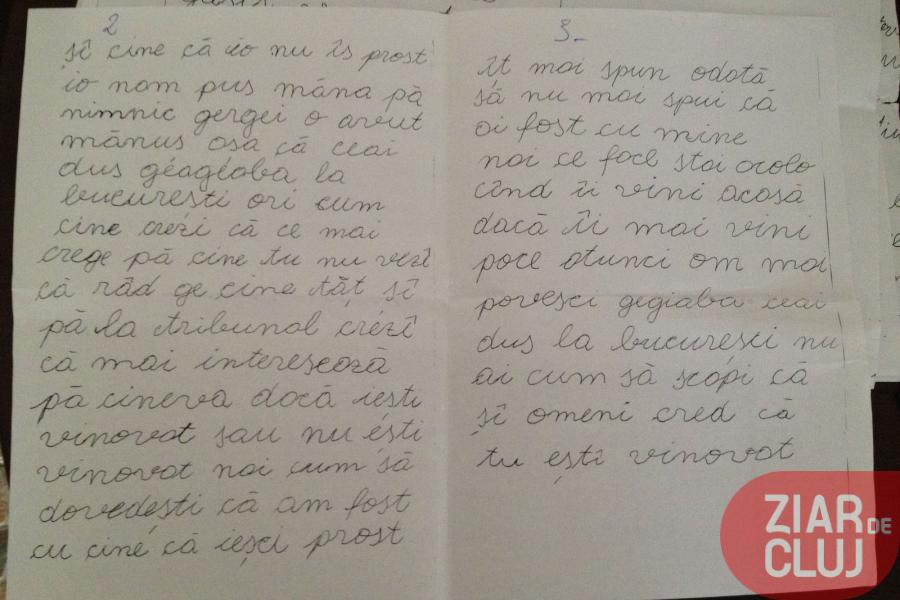 2
șî cine că io nu îs prost
io nom pus mâna pă
nimnic gergei o avut
mănuș așa că ceai
dus géagéaba la
bucurești ori cum
cine crézi că ce mai
crege pă cine tu nu vezî
că râd ge cine tăț șî
pă la tribunal crézî
că mai interesează
pă cineva dacă iești
vinovat sau nu éști
vinovat nai cum să
dovedești că am fost
cu ciné că iești prost
3-
ît mai spun odată
să nu mai spui că
oi fost cu mine
noi ce foce stai acolo
cînd îi vini acasă
dacă îi mai vini
poce atunci om mai
povesci gegiaba ceai
dus la bucuresci nu
ai cum să scopi că
șî omeni cred că
tu eștî vinovat
ZIAR DE
CLUJ